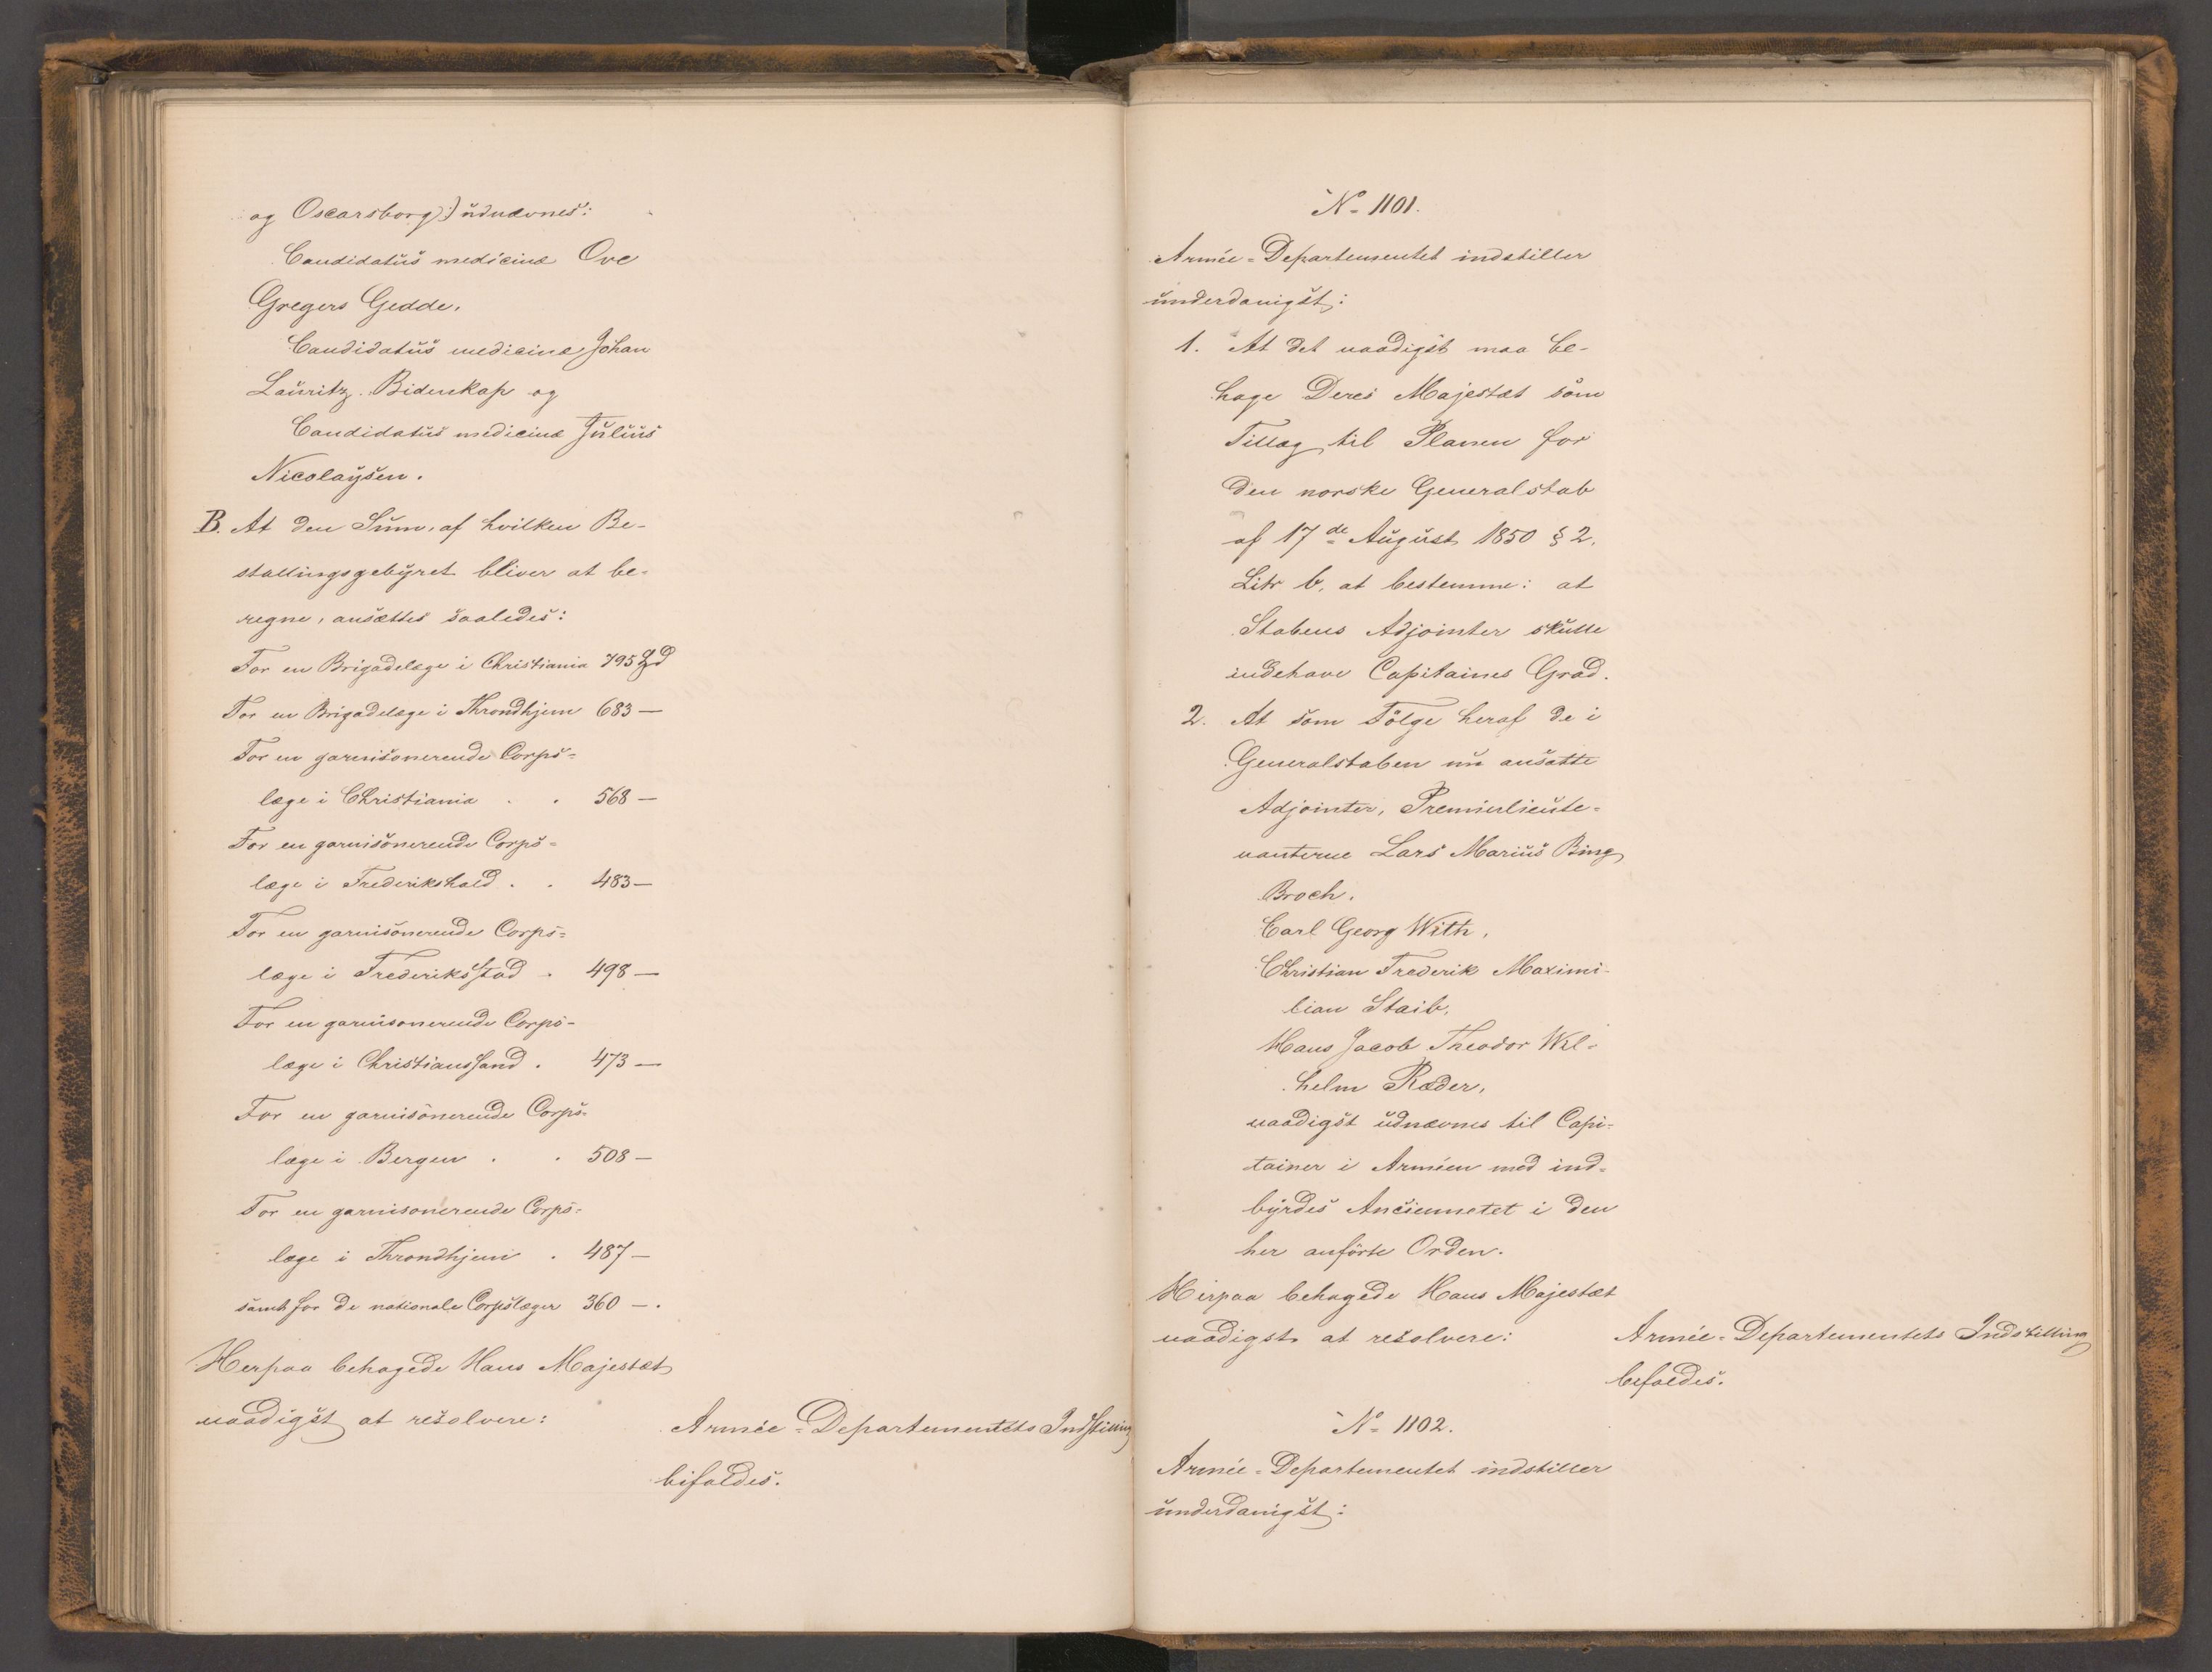 og Oscarsborg :) udnævnes:
Candidatus medicinæ Ove
Gregers Gedde.
Candidatus medicinæ Johan
Lauritz Bidenkap og
Candidatus medicinæ Julius
Nicolaysen.
B. At den Sum, af hvilken Be-
stallingsgebyret bliver at be-
regne, ansættes saaledes:
For en Brigadelæge i Christiania 795 Spd
For en Brigadelæge i Throndhjem 683 —
For en garnisonerende Corps-
læge i Christiania . . 568 —
For en garnisonerende Corps-
læge i Frederikshald . . 483 —
For en garnisonerende Corps-
læge i Frederiksstad . 498 —
For en garnisonerende Corps-
læge i Christianssand . 473 —
For en garnisonerende Corps-
læge i Bergen . . 508 —
For en garnisonerende Corps-
læge i Throndhjem . 487 —
samt for de nationale Corpslæger 360 — .
Herpaa behagede Hans Majestæt
naadigst at resolvere:
Armée-Departementets Indstilling
bifaldes.
No 1101.
Armée-Departementet indstiller
underdanigst:
1. At det naadigst maa be-
hage Deres Majestæt som
Tillæg til Planen for
den norske Generalstab
af 17de August 1850 § 2.
Litr b, at bestemme: at
Stabens Adjointer skulle
indehave Capitaines Grad.
2. At som Fölge heraf de i
Generalstaben nu ansatte
Adjointer, Premierlieute-
nanterne Lars Marius Bing
Broch.
Carl Georg With,
Christian Frederik Maximi-
lian Staib,
Hans Jacob Theodor Wil-
helm Ræder,
naadigst udnævnes til Capi-
tainer i Arméen med ind-
byrdes Anciennetet i den
her anförte Orden.
Herpaa behagede Hans Majestæt
naadigst at resolvere:
Armée-Departementets Indstilling
bifaldes.
No 1102.
Armée-Departementet indstiller
underdanigst: